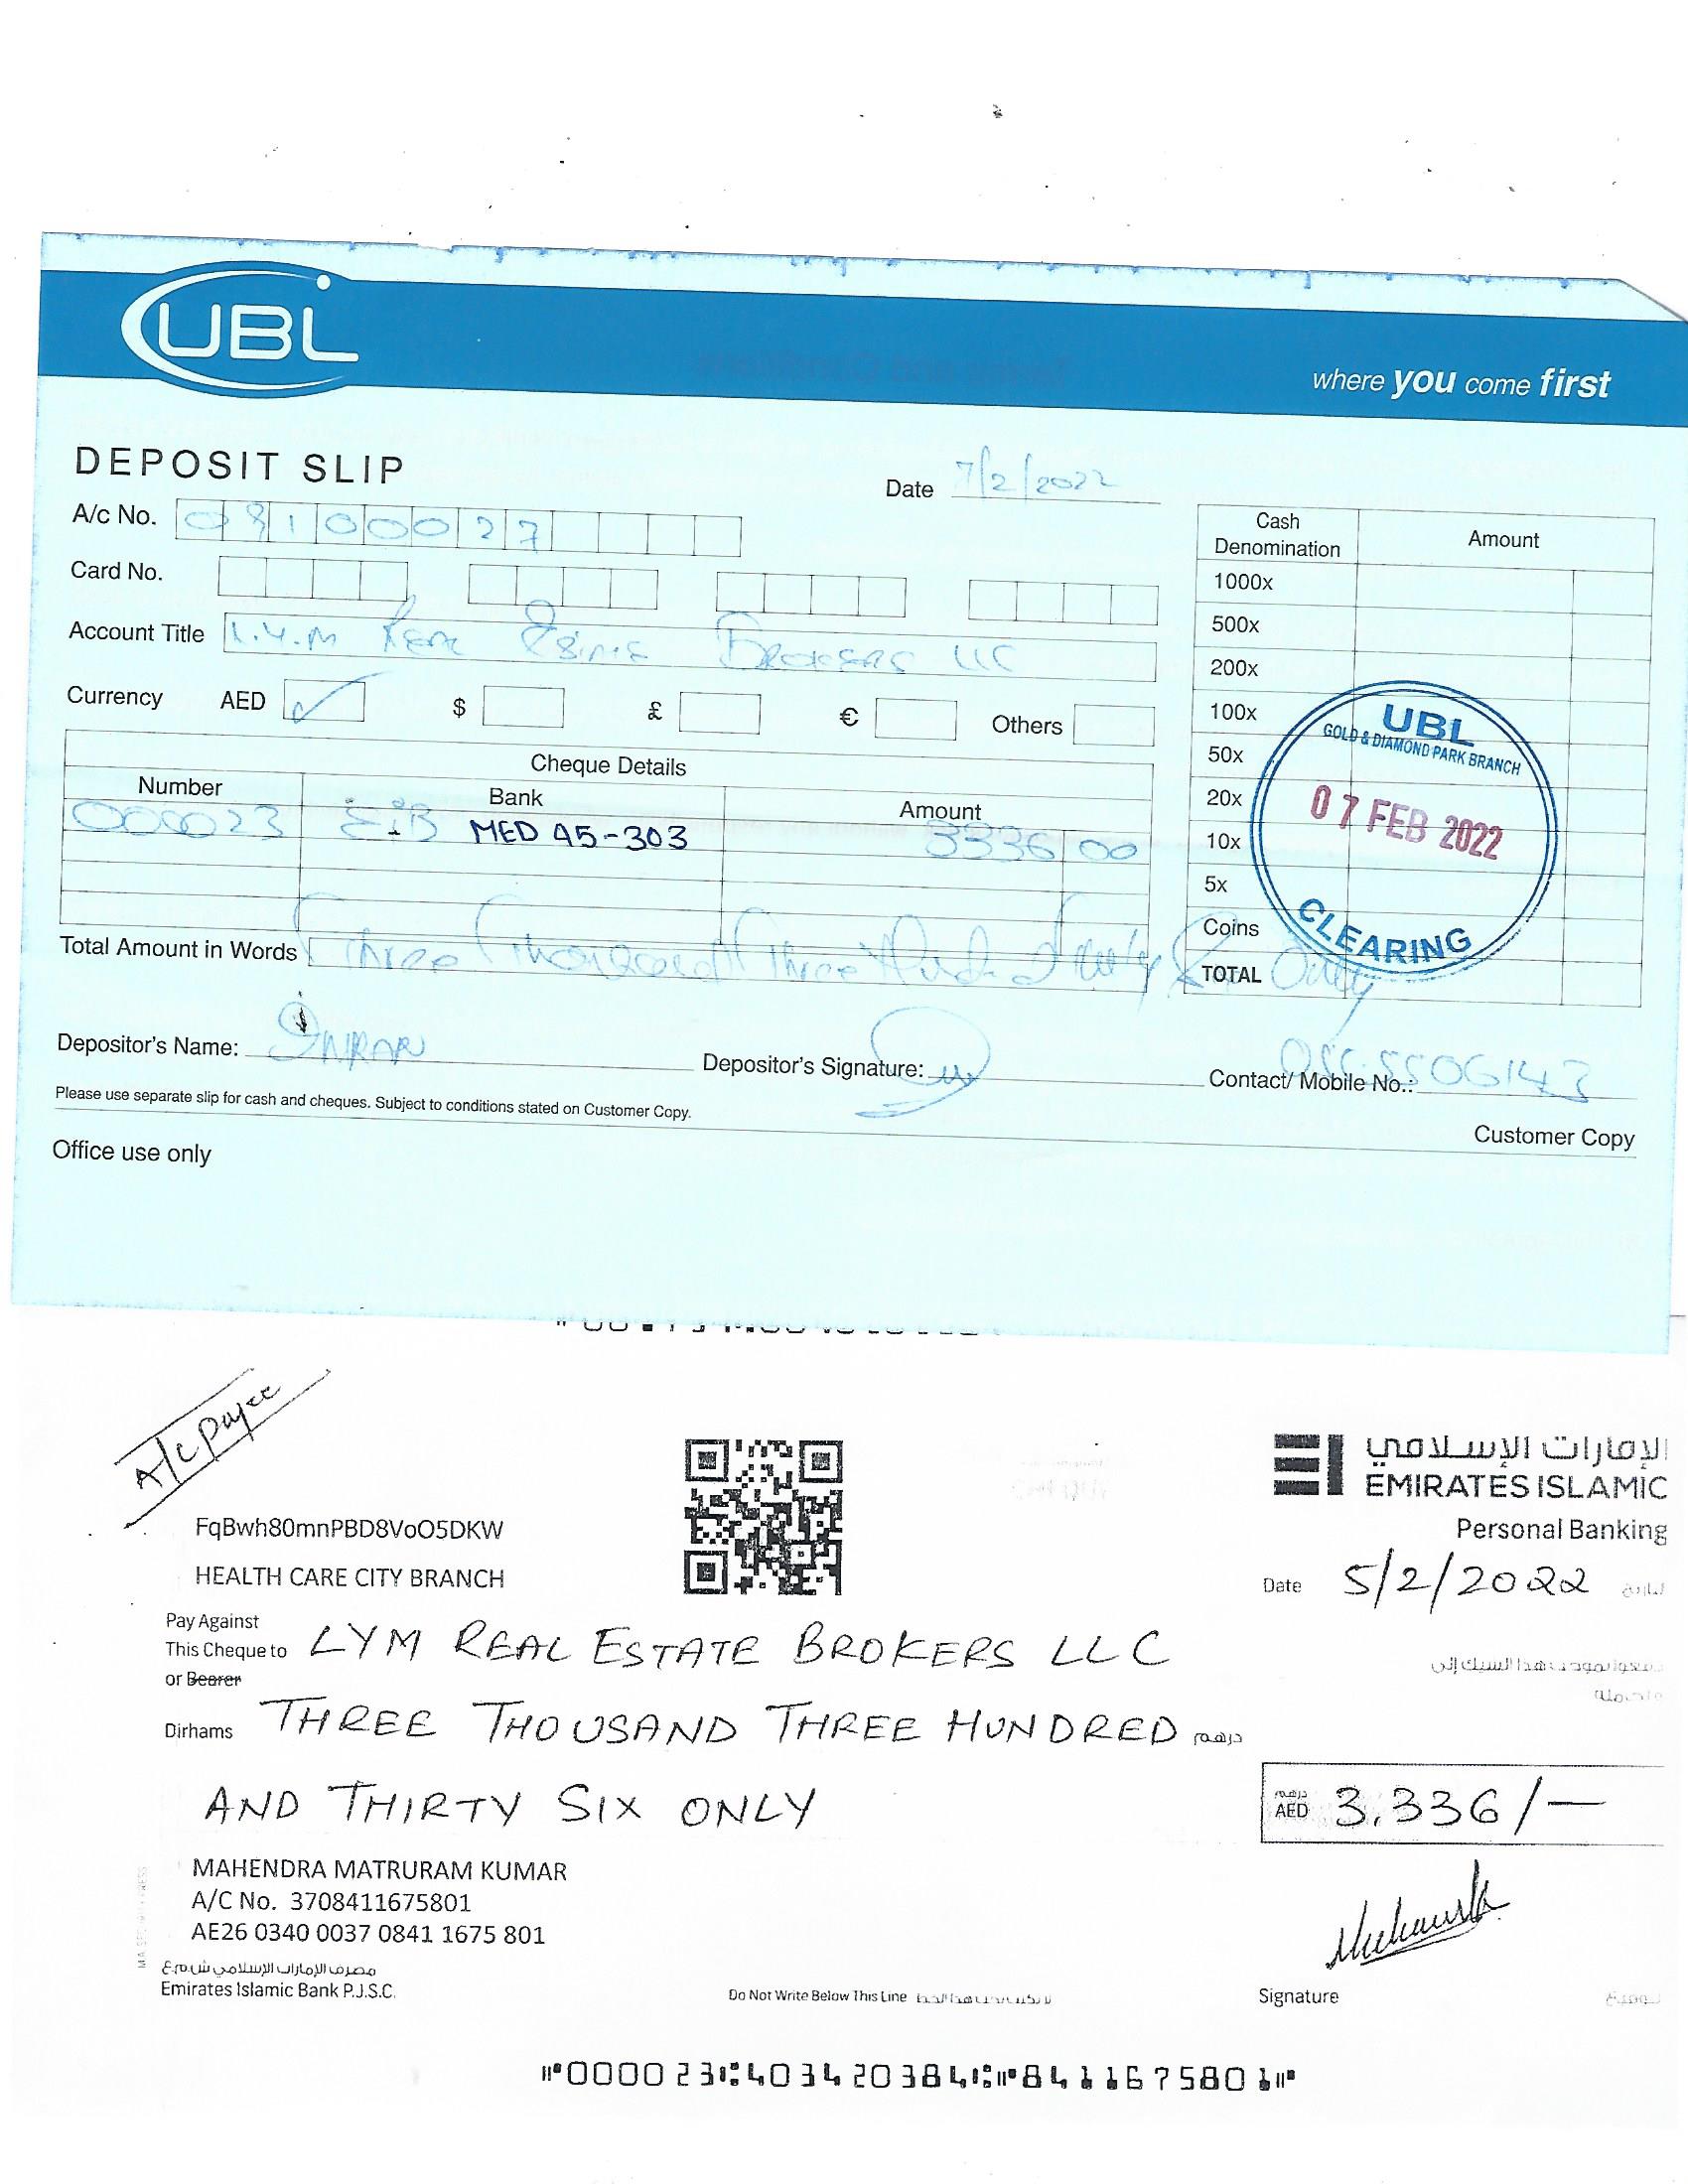 UBL
where you come first
DEPOSIT SLIP
Date 7/2/2022
A/c No. 09100027
Card No.
Account Title L.Y.M Real Estate Brokers LLC
Currency AED ✓ $ £ € Others
Cheque Details
Number Bank Amount
000023 EIB MED 45-303 3336 00
Total Amount in Words Three Thousand Three Only
Cash Denomination Amount
1000x
500x
200x
100x
50x
20x
10x
5x
Coins
TOTAL
UBL
GOLD & DIAMOND PARK BRANCH
07 FEB 2022
CLEARING
Depositor's Name: IMRAN
Depositor's Signature:
Contact/ Mobile No.: 5506143
Please use separate slip for cash and cheques. Subject to conditions stated on Customer Copy.
Customer Copy
Office use only
A/C Payee
الإمارات الإسلامي
EMIRATES ISLAMIC
Personal Banking
FqBwh80mnPBD8VoO5DKW
HEALTH CARE CITY BRANCH
Date 5/2/2022
Pay Against
This Cheque to LYM REAL ESTATE BROKERS LLC
or Bearer
Dirhams THREE THOUSAND THREE HUNDRED درهم
AND THIRTY SIX ONLY
درهم
AED 3.336/—
MAHENDRA MATRURAM KUMAR
A/C No. 3708411675801
AE26 0340 0037 0841 1675 801
مصرف الإمارات الإسلامي ش.م.ع
Emirates Islamic Bank P.J.S.C.
Do Not Write Below This Line
Signature
⑈000023⑆403420384⑆⑈8411675801⑈